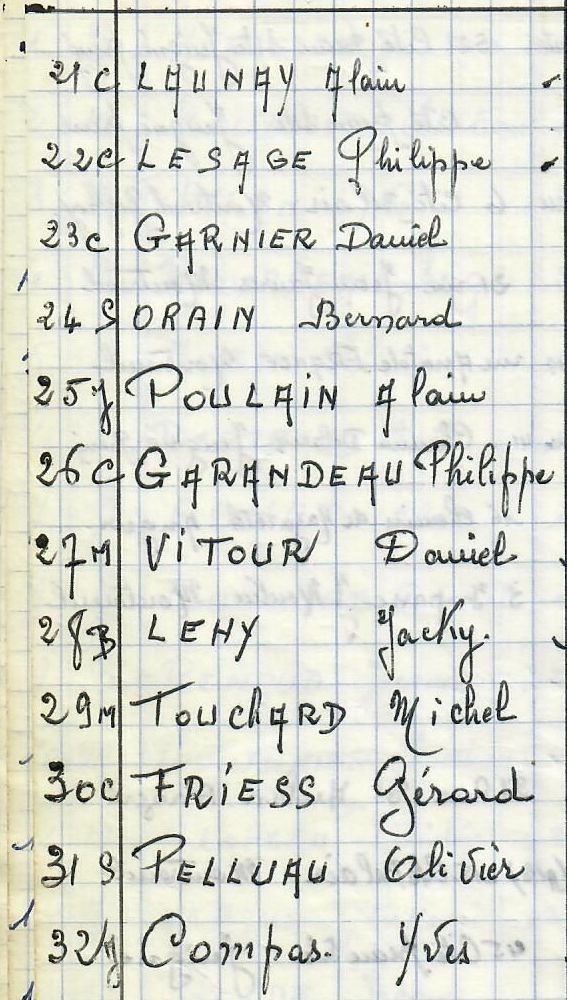 21 C LAUNAY Alain
22 C LESAGE Philippe
23 C GARNIER Daniel
24 S ORAIN Bernard
25 J POULAIN Alain
26 C GARANDEAU Philippe
27 M VITOUR Daniel
28 B LEHY Jacky.
29 M TOUCHARD Michel
30 C FRIESS Gérard
31 S PELLUAU Olivier
32 J Compas. Yves